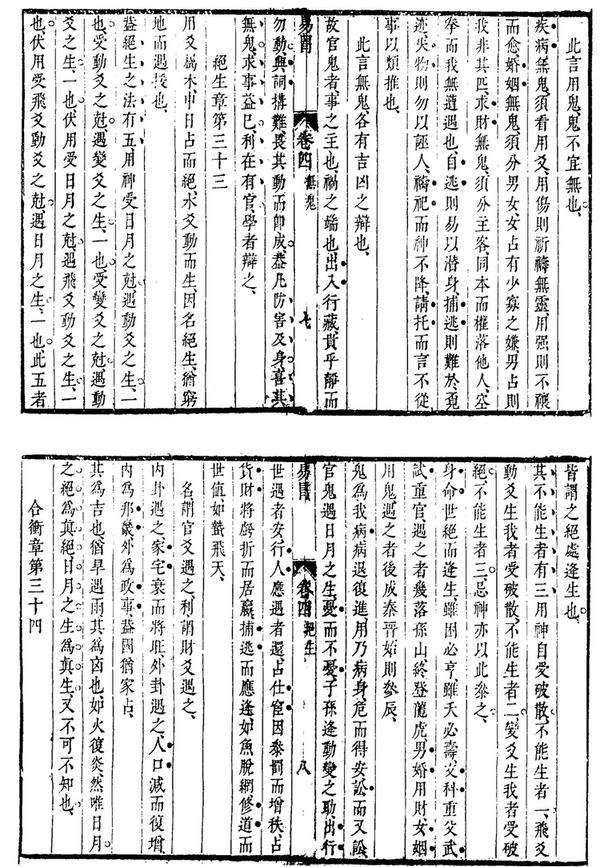 此言用鬼鬼不宜無也
疾病無鬼須看用爻用傷則祈禱無靈用强則不禳
而愈婚姻無鬼須分男女女占有少寡之嫌男占則
我非其匹求財無鬼須分主客同本而權落他人空
拳而我無遺遇也自逃則易以潛身捕逃則難於覔
迹失物則勿以誣人禱祀而神不降請托而言不從
事以類推也
此言無鬼各有吉凶之辯也
故官鬼者事之主也禍之端也出入行藏貴乎靜而
易冒 卷四 無鬼 七
勿動與詞搆難畏其動而卽成葢凡防害及身喜其
無鬼求事益已利在有官學者辯之
絕生章第三十三
用爻屬木申日占而絕水爻動而生因名絕生猶窮
地而遇援也
葢絕生之法有五用神受日月之尅遇動爻之生一
也受動爻之尅遇變爻之生一也受變爻之尅遇動
爻之生一也伏用受日月之尅遇飛爻動爻之生一
也伏用受飛爻動爻之尅遇日月之生一也此五者
皆謂之絕處逢生也
其不能生者有三用神自受破散不能生者一飛爻
動爻生我者受破散不能生者二變爻生我者受破
絕不能生者三忌神亦以此參之
身命世絕而逢生雖困必亨雖夭必壽文科重父武
試重官遇之者幾落孫山終登龍虎男婚用財女姻
用鬼遇之者後成秦晉始則參辰
鬼爲我病病退復進用乃病身危而得安訟而又訟
官鬼遇日月之生憂而不憂子孫逢動變之助出行
易冒 卷四 絕生 八
世遇者安行人應遇者還占仕宦因黍罰而增秩占
貨財將虧折而居贏捕逃而應逢如魚脫網修道而
世值如蟄飛天
名謂官爻遇之利謂財爻遇之
內卦遇之家宅衰而將旺外卦遇之人口減而復增
內爲邦畿外爲政事葢國猶家占
其爲吉也猶旱遇雨其爲凶也如火復炎然唯日月
之絕爲眞絕日月之生爲眞生又不可不知也
合衝章第三十四